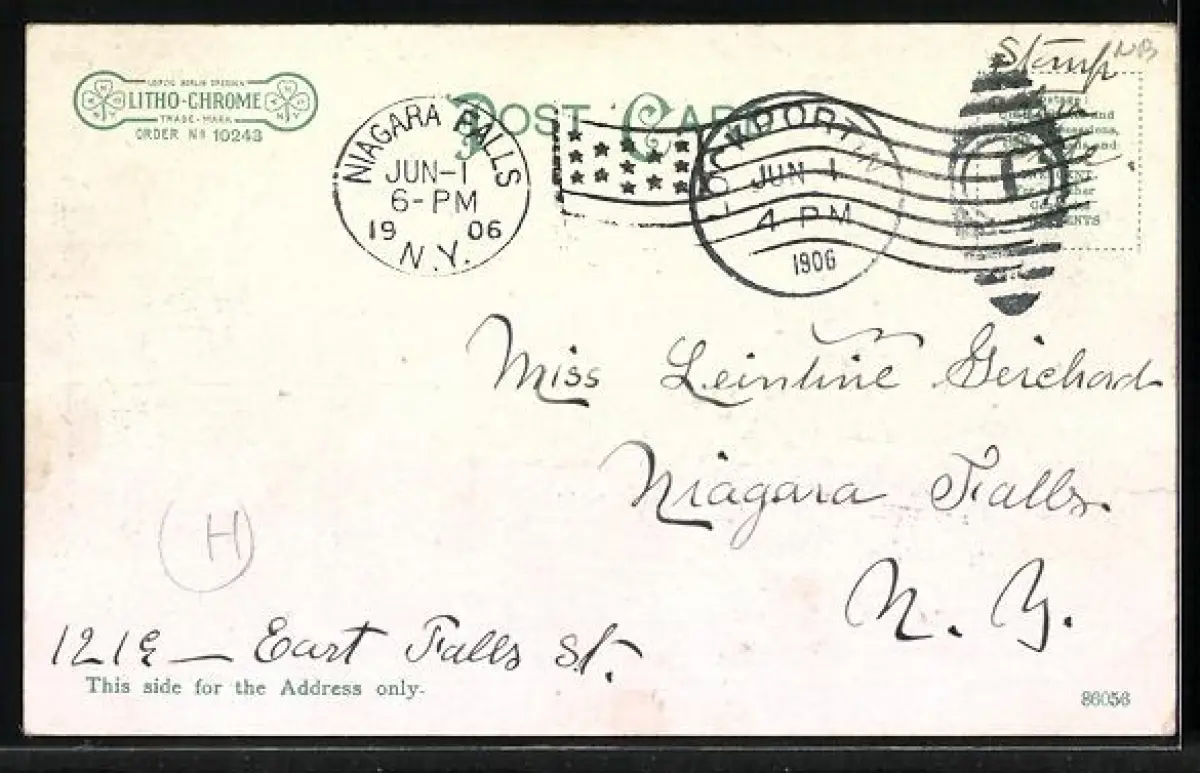 Stamp NB
LEIPZIG BERLIN DRESDEN
LITHO-CHROME
TRADE-MARK
ORDER No 19243
POST CARD
NIAGARA FALLS
JUN-1
6-PM
19 06
N.Y.
LOCKPORT
JUN 1
4 PM
1906
1
Miss Leintine Geirhard
Niagara Falls.
N. Y.
H
1219 — East Falls St.
This side for the Address only.
86056